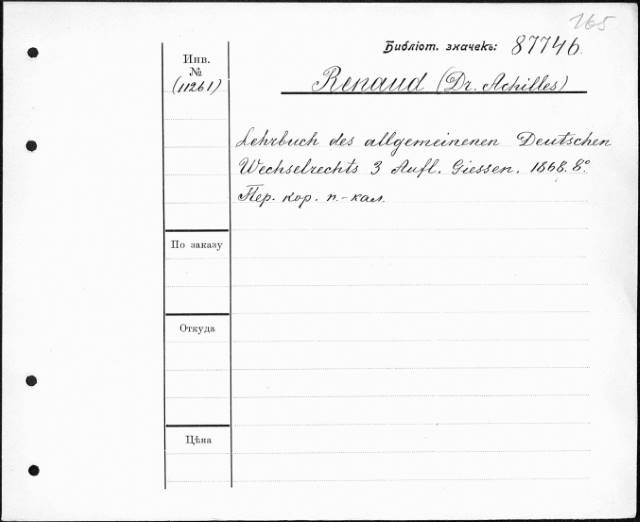 165
Библіот. значекъ: 87746
Инв.
№
(11261)
Renaud (Dr. Achilles)
Lehrbuch des allgemeinenen Deutschen
Wechselrechts 3 Aufl. Giessen. 1868. 8º.
Пер. кор. п.-кал.
По заказу
Откуда
Цѣна